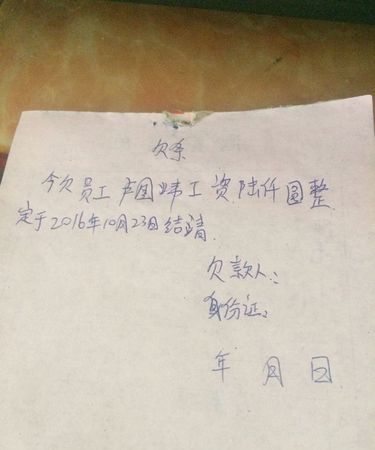 欠条
今欠员工卢国炜工资陆仟圆整
定于2016年10月23日结清
欠款人:
身份证:
年 月 日